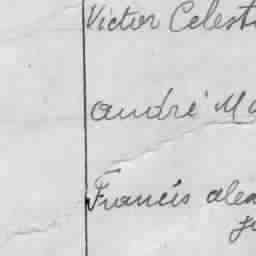 Victor Celest
André Ma
Francis alex